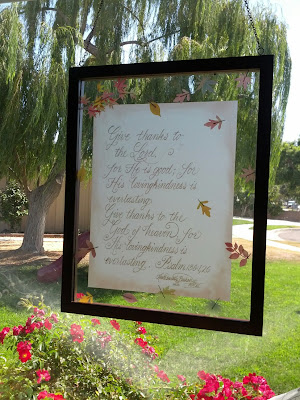 Give thanks to
the Lord,
for He is good; for
His lovingkindness is
everlasting.
Give thanks to the
God of heaven, for
His lovingkindness is
everlasting. Psalm